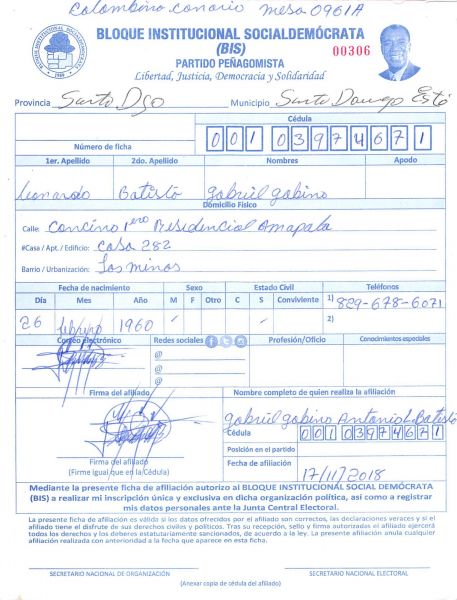 Colombino Canario mesa 0961A
BLOQUE INSTITUCIONAL SOCIALDEMÓCRATA
(BIS)
00306
PARTIDO PEÑAGOMISTA
Libertad, Justicia, Democracia y Solidaridad
Provincia Santo Dgo Municipio Santo Domigo Este
Cédula
Número de ficha 001 0397467 1
1er. Apellido 2do. Apellido Nombres Apodo
Leonardo Batista gabriel gabino
Domicilio Físico
Calle: Cancino 1ero Residencial Amapala
#Casa / Apt. / Edificio: Casa 282
Barrio / Urbanización: Los minas
Fecha de nacimiento Sexo Estado Civil Teléfonos
Día Mes Año M F Otro C S Conviviente 1) 829-678-6071
26 febrero 1960 2)
Correo electrónico Redes sociales Profesión/Oficio Conocimientos especiales
@
@
@
Firma del afiliado Nombre completo de quien realiza la afiliación
gabriel gabino Batista
Cédula 001 0397467 1
Posición en el partido
Firma del afiliado
(Firme igual que en la Cédula)
Fecha de afiliación 17/11/2018
Mediante la presente ficha de afiliación autorizo al BLOQUE INSTITUCIONAL SOCIAL DEMÓCRATA
(BIS) a realizar mi inscripción única y exclusiva en dicha organización política, así como a registrar
mis datos personales ante la Junta Central Electoral.
La presente ficha de afiliación es válida si los datos ofrecidos por el afiliado son correctos, las declaraciones veraces y si el
afiliado tiene el disfrute de sus derechos civiles y políticos. Tras su recepción, sello y firma autorizadas el afiliado ejercerá
todos los derechos y los deberes estatutariamente sancionados, de acuerdo a la ley. La presente afiliación anula cualquier
afiliación realizada con anterioridad a la fecha que aparece en esta ficha.
SECRETARIO NACIONAL DE ORGANIZACIÓN SECRETARIO NACIONAL ELECTORAL
(Anexar copia de cédula del afiliado)